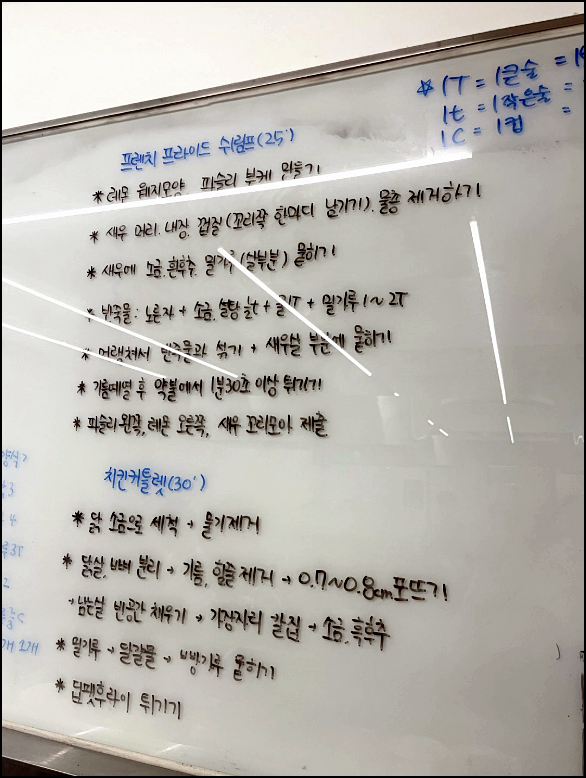 ☆ 1T = 1큰술 =
1t = 1작은술 =
1C = 1컵 =
프렌치 프라이드 쉬림프(25')
* 레몬 웨지모양, 파슬리 부케 만들기
* 새우 머리, 내장, 껍질(꼬리쪽 한마디 남기기), 물총 제거하기
* 새우에 소금, 흰후추, 밀가루(살부분) 묻히기
* 반죽물 : 노른자 + 소금, 설탕 + 물1T + 밀가루 1~2T
* 머랭쳐서 반죽물과 섞기 → 새우살 부분에 묻하기
* 기름예열 후 약불에서 1분30초 이상 튀기기
* 파슬리 왼쪽, 레몬 오른쪽, 새우 꼬리모아 제출
치킨커틀렛(30')
* 닭 소금으로 세척 → 물기제거
* 닭살, 뼈 분리 → 기름, 힘줄 제거 → 0.7~0.8cm포뜨기
→ 남는살 빈공간 채우기 → 가장자리 칼집 → 소금, 흑후추
* 밀가루 → 달걀물 → 빵가루 묻하기
* 딥팻후라이 튀기기